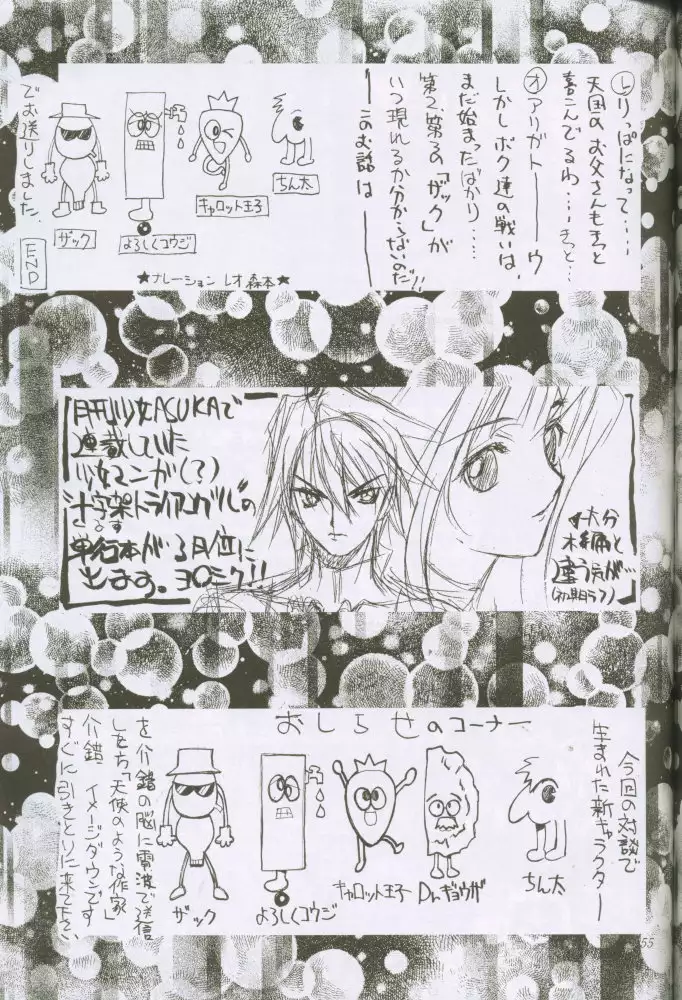 ㋵りっぱになって……
天国のお父さんもきっと
喜こんでるわ……きっと…
㋔アリガトーーウ
しかしボク達の戦いは、
まだ始まったばかり……
第2、第3の「ザック」が
いつ現れるか分からないのだ!!
——このお話は——
ちん太
キャロット王子
よろしくコウジ
ザック
★ナレーション レオ森本★
でお送りしました。
END
月刊少女ASUKAで
連載していた
少女マンガ(?)
十字架トライアングルの
単行本が3月位に
出ます。ヨロシク!!
大分
本編と
違う気が…
(初期ラフ)
おしらせのコーナー
今回の対談で
生まれた新キャラクター
ちん太
Dr.ギョウザ
キャロット王子
よろしくコウジ
ザック
を介錯の脳に電波で送信
した方「天使のような作家」
介錯 イメージダウンです
すぐに引きとりに来て下さい
55